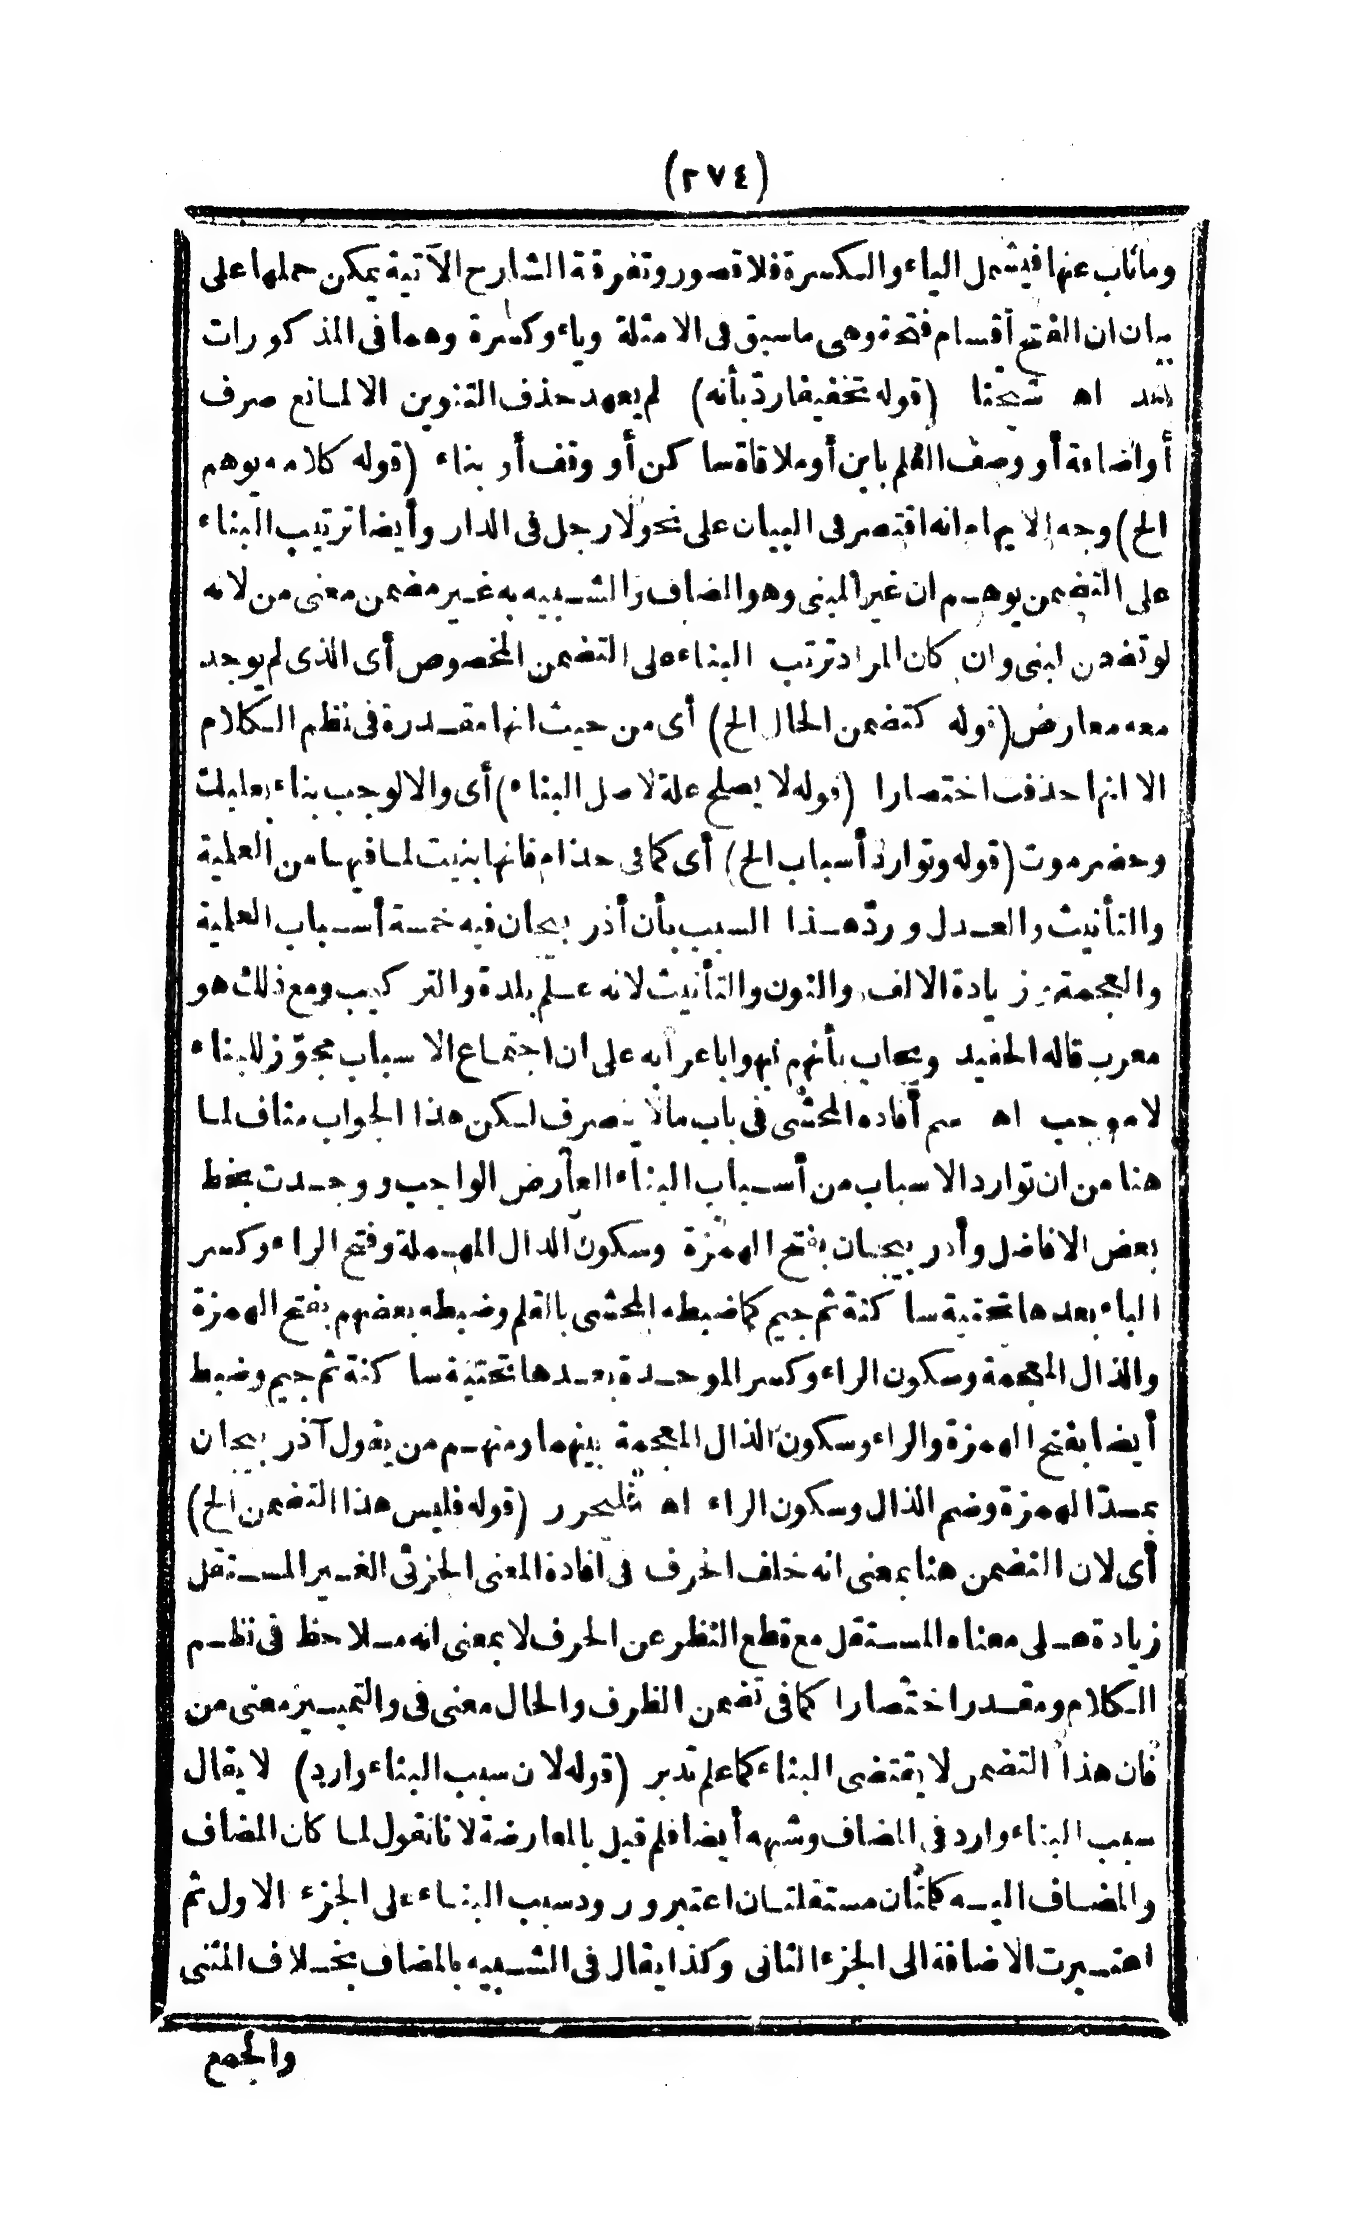 (٢٧٤)
وماناب عنها فيشمل الياء والكسرة فلا قصور وتفرقة الشارح الآتية يمكن حملها على
بيان ان الفتح أقسام فتحة وهى ماسبق فى الامثلة وياء وكسرة وهما فى المذكورات
بعد اه شيخنا (قوله تخفيفا ردّ بأنه) لم يعهد حذف التنوين الا لمانع صرف
أو اضافة أو وصف العلم بابن أو ملاقاة ساكن أو وقف أو بناء (قوله كلامه يوهم
الخ) وجه الايهام انه اقتصر فى البيان على نحو لا رجل فى الدار وأيضا ترتيب البناء
على التضمن يوهم ان غير المبنى وهو المضاف والشبيه به غير مضمن معنى من لانه
لو تضمن لبنى وان كان المراد ترتب البناء على التضمن المخصوص أى الذى لم يوجد
معه معارض (قوله كتضمن الحال الخ) أى من حيث انها مقدرة فى نظم الكلام
الا انها حذفت اختصارا (قوله لا يصلح علة لاصل البناء) أى والا لوجب بناء بعلبك
وحضرموت (قوله وتوارد أسباب الخ) أى كما فى حذام فانها بنيت لما فيها من العلمية
والتأنيث والعدل وردّ هذا السبب بأن أذربيجان فيه خمسة أسباب العلمية
والعجمة وزيادة الالف والنون والتأنيث لانه علم بلدة والتركيب ومع ذلك هو
معرب قاله الحفيد ويجاب بأنهم نبهوا باعرابه على ان اجتماع الاسباب مجوّز للبناء
لا موجب اه سم أفاده المحشى فى باب مالا ينصرف لكن هذا الجواب مناف لما
هنا من ان توارد الاسباب من أسباب البناء العارض الواجب ووجدت بخط
بعض الافاضل وأدربيجان بفتح الهمزة وسكون الدال المهملة وفتح الراء وكسر
الباء بعدها تحتية ساكنة ثم جيم كما ضبطه المحشى بالقلم وضبطه بعضهم بفتح الهمزة
والذال المعجمة وسكون الراء وكسر الموحدة بعدها تحتية ساكنة ثم جيم وضبط
أيضا بفتح الهمزة والراء وسكون الذال المعجمة بينهما ومنهم من يقول آذربيجان
بمدّ الهمزة وضم الذال وسكون الراء اه فليحرر (قوله فليس هذا التضمن الخ)
أى لان التضمن هنا بمعنى انه خلف الحرف فى افادة المعنى الجزئى الغير المستقل
زيادة على معناه المستقل مع قطع النظر عن الحرف لا بمعنى انه ملاحظ فى نظم
الكلام ومقدر اختصارا كما فى تضمن الظرف والحال معنى فى والتمييز معنى من
فان هذا التضمن لا يقتضى البناء كما علم تدبر (قوله لان سبب البناء وارد) لا يقال
سبب البناء وارد فى المضاف وشبهه أيضا فلم قيل بالمعارضة لانا نقول لما كان المضاف
والمضاف اليه كلمتان مستقلتان اعتبر ورود سبب البناء على الجزء الاول ثم
اعتبرت الاضافة الى الجزء الثانى وكذا يقال فى الشبيه بالمضاف بخلاف المثنى
والجمع